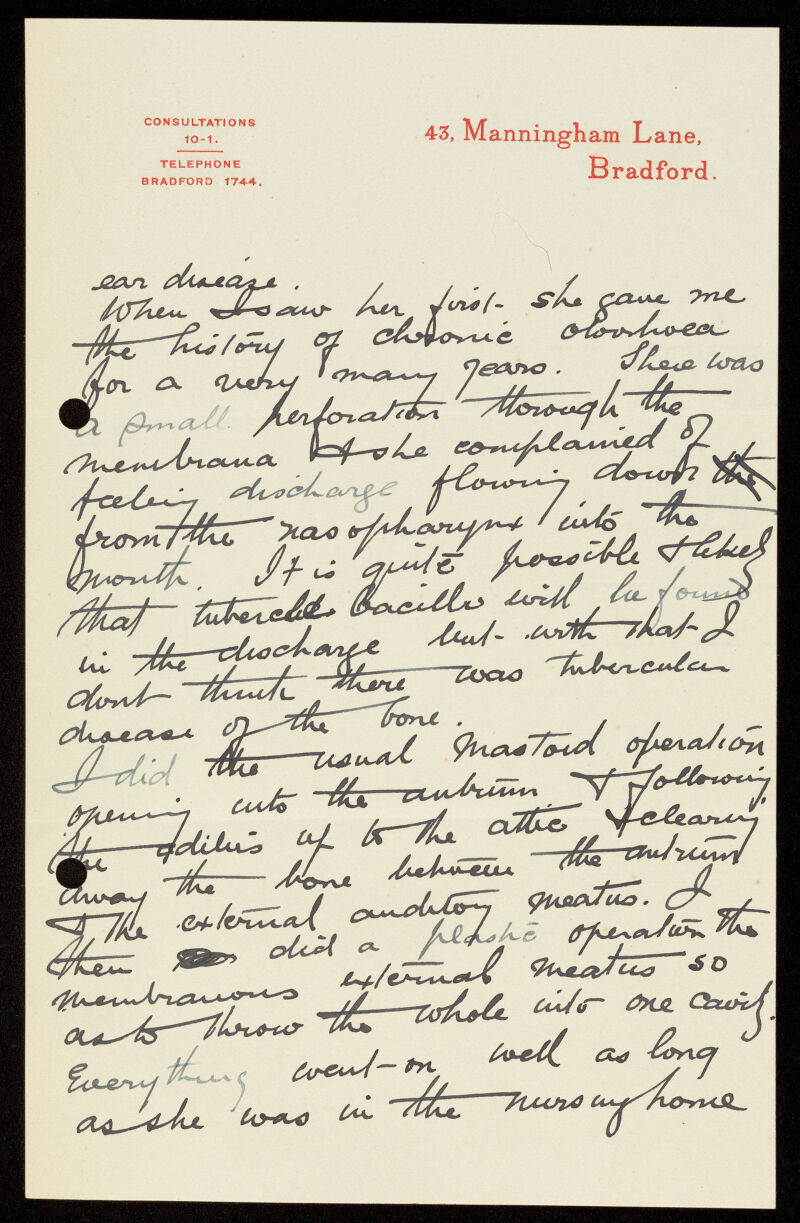 CONSULTATIONS
10-1.
TELEPHONE
BRADFORD 1744.
43, Manningham Lane,
Bradford.
ear disease.
When I saw her first she gave me
the history of chronic otorrhoea
for a very many years. There was
a small perforation through the
membrana & she complained of
feeling discharge flowing down the
from the nasopharynx into the
mouth. It is quite possible & likely
that tubercle bacilli will be found
in the discharge but with that I
dont think there was tubercular
disease of the bone.
I did the usual Mastoid operation
opening into the antrum & following
the aditus up to the attic & clearing
away the bone between the antrum
& the external auditory meatus. I
then did a plastic operation the
membranous external meatus so
as to throw the whole into one cavity.
Everything went on well as long
as she was in the nursing home